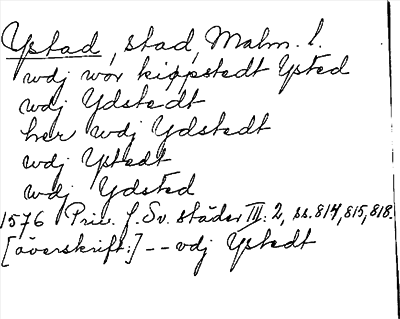 Ystad, stad, Malm. l.
wdj wor kiøpstedt Ysted
wdj Ydstedt
her wdj Ydstedt
wdj Ystedt
wdj Ydsted
1576 Priv. f. Sv. städer III: 2, ss. 814, 815, 818.
[överskrift:] -- vdj Ystedt